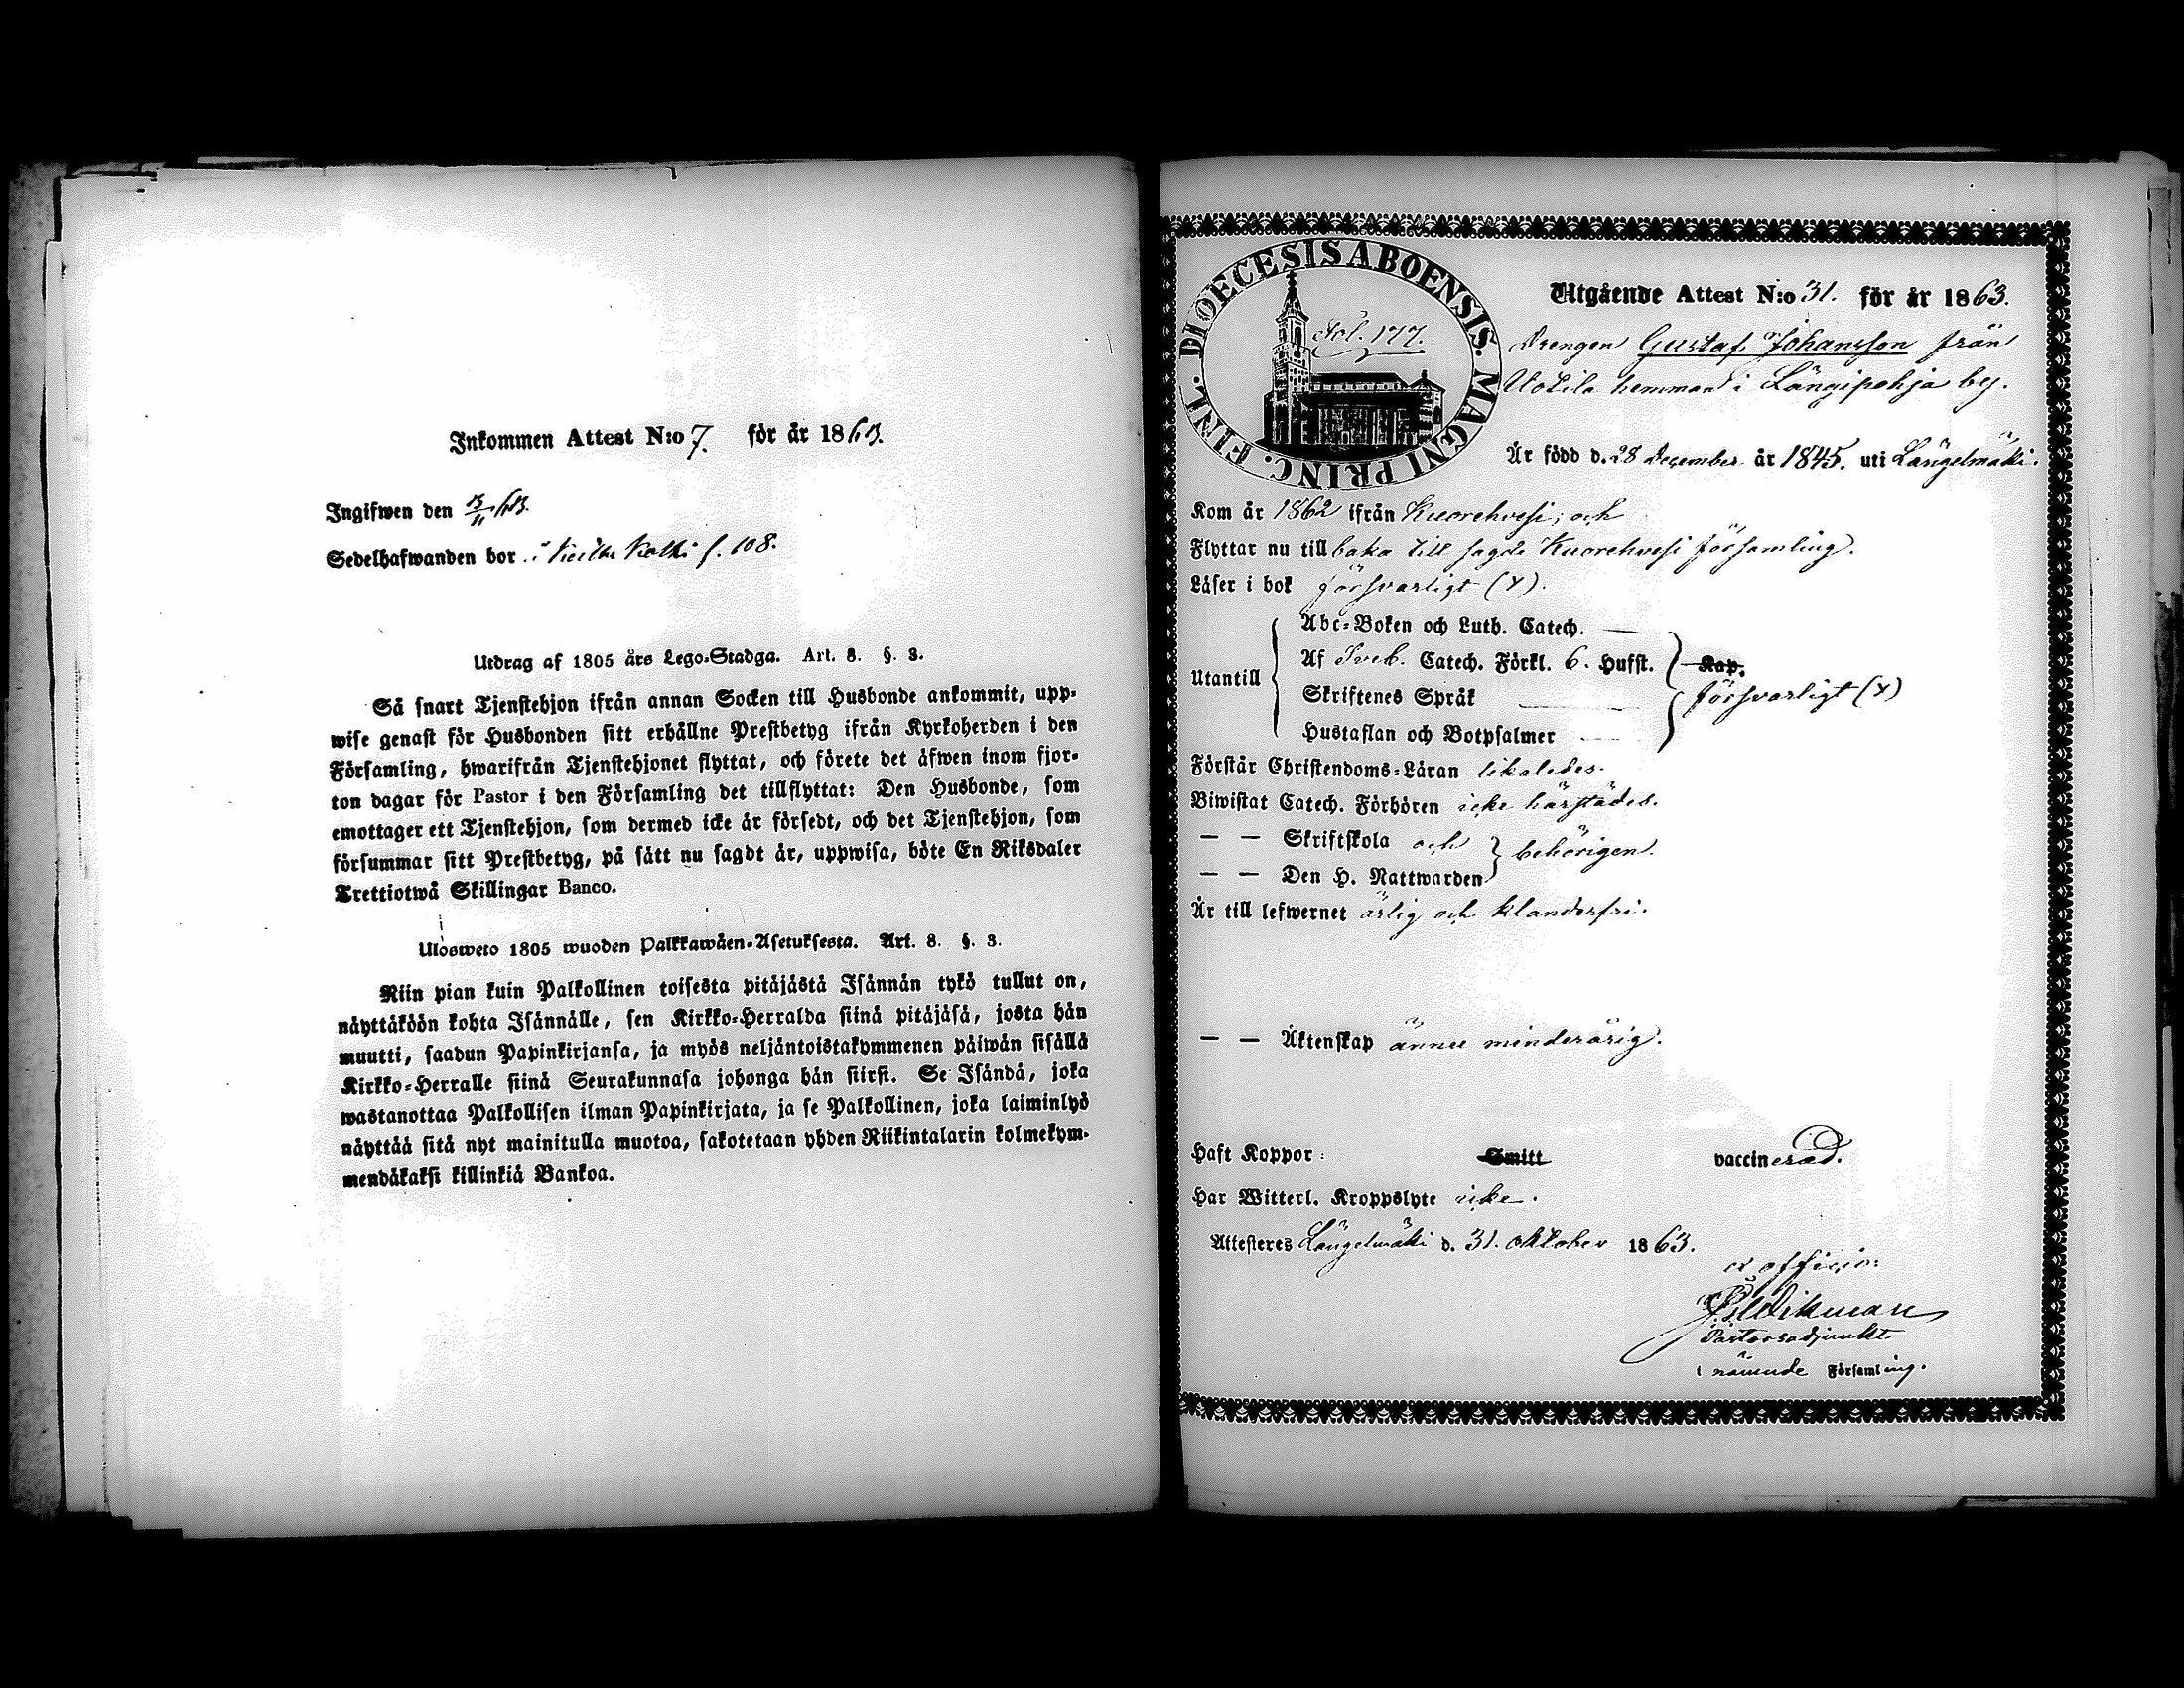 Inkommen Attest N:o 7. för år 1863.
Ingifwen den 13/11 63.
Sedelhafwanden bor i f. 108.
Utdrag af 1805 års Lego-Stadga. Art. 8. §. 3.
Så snart Tjenstehjon ifrån annan Socken till Husbonde ankommit, upp-
wise genast för Husbonden sitt erhållne Prestbetyg ifrån Kyrkoherden i den
Församling, hwarifrån Tjenstehjonet flyttat, och förete det äfwen inom fjor-
ton dagar för Pastor i den Församling det tillflyttat: Den Husbonde, som
emottager ett Tjenstehjon, som dermed icke är försedt, och det Tjenstehjon, som
försummar sitt Prestbetyg, på sätt nu sagdt är, uppwisa, böte En Riksdaler
Trettiotwå Skillingar Banco.
Ulosweto 1805 wuoden Palkkawäen-Asetuksesta. Art. 8. §. 3.
Niin pian kuin Palkollinen toisesta pitäjästä Isännän tykö tullut on,
näyttäköön kohta Isännälle, sen Kirkko-Herralda siinä pitäjäsä, josta hän
muutti, saadun Papinkirjansa, ja myös neljäntoistakymmenen päiwän sisällä
Kirkko-Herralle siinä Seurakunnasa johonga hän siirsi. Se Isändä, joka
wastanottaa Palkollisen ilman Papinkirjata, ja se Palkollinen, joka laiminlyö
näyttää sitä nyt mainitulla muotoa, sakotetaan yhden Riikintalarin kolmekym-
mendäkaksi killinkiä Bankoa.
FINL. DIOECESIS ABOENSIS. MAGNI PRINC.
Fol. 177.
Utgående Attest N:o 31. för år 1863.
Drengen Gustaf Johansson från
Uotila hemman i Längipohja by.
Är född d. 28 December år 1845. uti Längelmäki.
Kom år 1862 ifrån Kuorehvesi; och
Flyttar nu till baka till sagde Kuorehvesi församling.
Läser i bok försvarligt (Y).
Utantill
Abc-Boken och Luth. Catech. —
Af Sveb. Catech. Förkl. 6. Hufst. Kap.
Skriftenes Språk — försvarligt (Y)
Hustaflan och Botpsalmer —
Förstår Christendoms-Läran likaledes.
Biwistat Catech. Förhören icke härstädes.
— — Skriftskola och
— — Den H. Nattwarden behörigen.
Är till lefwernet ärlig och klanderfri.
— — Äktenskap ännu minderårig.
Haft Koppor: Smitt vaccinerad.
Har Witterl. Kroppslyte icke.
Attesteres Längelmäki d. 31. oktober 1863.
ex officio:
Wikman
Pastorsadjunkt
i nämnde Församling.